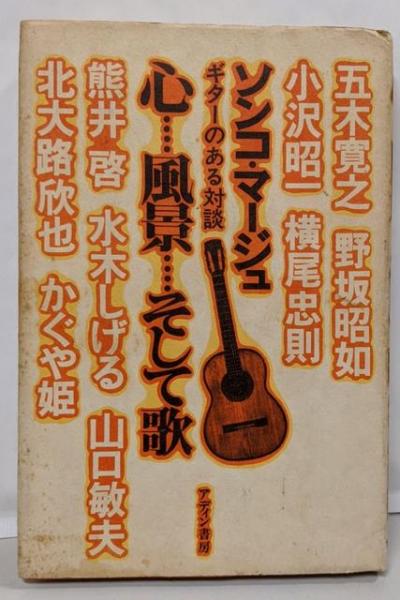 五木寛之 野坂昭如
小沢昭一 横尾忠則
ソンコ・マージュ
ギターのある対談
心……風景……そして歌
熊井啓 水木しげる 山口敏夫
北大路欣也 かぐや姫
アディン書房